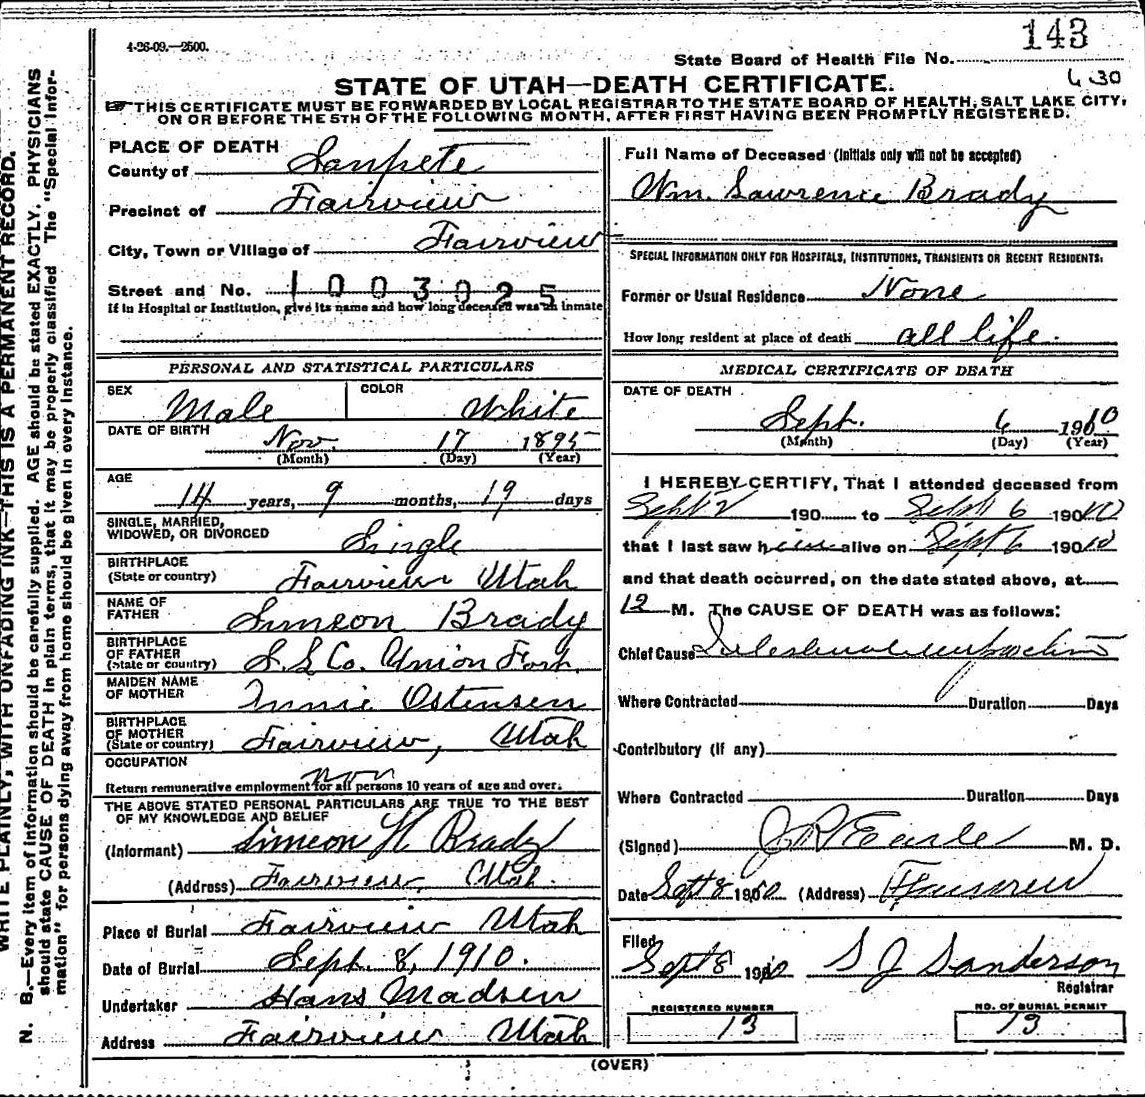 4-26-09.—2500.
143
State Board of Health File No.
430
STATE OF UTAH—DEATH CERTIFICATE.
THIS CERTIFICATE MUST BE FORWARDED BY LOCAL REGISTRAR TO THE STATE BOARD OF HEALTH, SALT LAKE CITY,
ON OR BEFORE THE 5TH OF THE FOLLOWING MONTH, AFTER FIRST HAVING BEEN PROMPTLY REGISTERED.
PLACE OF DEATH
County of Sanpete
Precinct of Fairview
City, Town or Village of Fairview
Street and No. 1003025
If in Hospital or Institution, give its name and how long deceased was an inmate
PERSONAL AND STATISTICAL PARTICULARS
SEX Male COLOR White
DATE OF BIRTH Nov. 17 1895
(Month) (Day) (Year)
AGE
14 years, 9 months, 19 days
SINGLE, MARRIED,
WIDOWED, OR DIVORCED Single
BIRTHPLACE
(State or country) Fairview Utah
NAME OF
FATHER Simeon Brady
BIRTHPLACE
OF FATHER
(State or country) S. L. Co. Union Fort
MAIDEN NAME
OF MOTHER Ostensen
BIRTHPLACE
OF MOTHER
(State or country) Fairview, Utah
OCCUPATION
Return remunerative employment for all persons 10 years of age and over.
THE ABOVE STATED PERSONAL PARTICULARS ARE TRUE TO THE BEST
OF MY KNOWLEDGE AND BELIEF
(Informant) Simeon H Brady
(Address) Fairview, Utah.
Place of Burial Fairview Utah
Date of Burial Sept. 8, 1910.
Undertaker Hans Madsen
Address Fairview Utah
Full Name of Deceased (Initials only will not be accepted)
Wm. Lawrence Brady
SPECIAL INFORMATION ONLY FOR HOSPITALS, INSTITUTIONS, TRANSIENTS OR RECENT RESIDENTS.
Former or Usual Residence None
How long resident at place of death all life.
MEDICAL CERTIFICATE OF DEATH
DATE OF DEATH
Sept. 6 1910
(Month) (Day) (Year)
I HEREBY CERTIFY, That I attended deceased from
Sept 2 190 to Sept 6 1910
that I last saw him alive on Sept 6 1910
and that death occurred, on the date stated above, at
12 M. The CAUSE OF DEATH was as follows:
Chief Cause
Where Contracted Duration Days
Contributory (if any)
Where Contracted Duration Days
(Signed) Earle M. D.
Date Sept 8 1910 (Address)
Filed
Sept 8 1910 S J Sanderson
Registrar
REGISTERED NUMBER
13
NO. OF BURIAL PERMIT
13
(OVER)
WRITE PLAINLY, WITH UNFADING INK—THIS IS A PERMANENT RECORD.
N. B.—Every item of information should be carefully supplied. AGE should be stated EXACTLY, PHYSICIANS
should state CAUSE OF DEATH in plain terms, that it may be properly classified The "Special Infor-
mation" for persons dying away from home should be given in every instance.